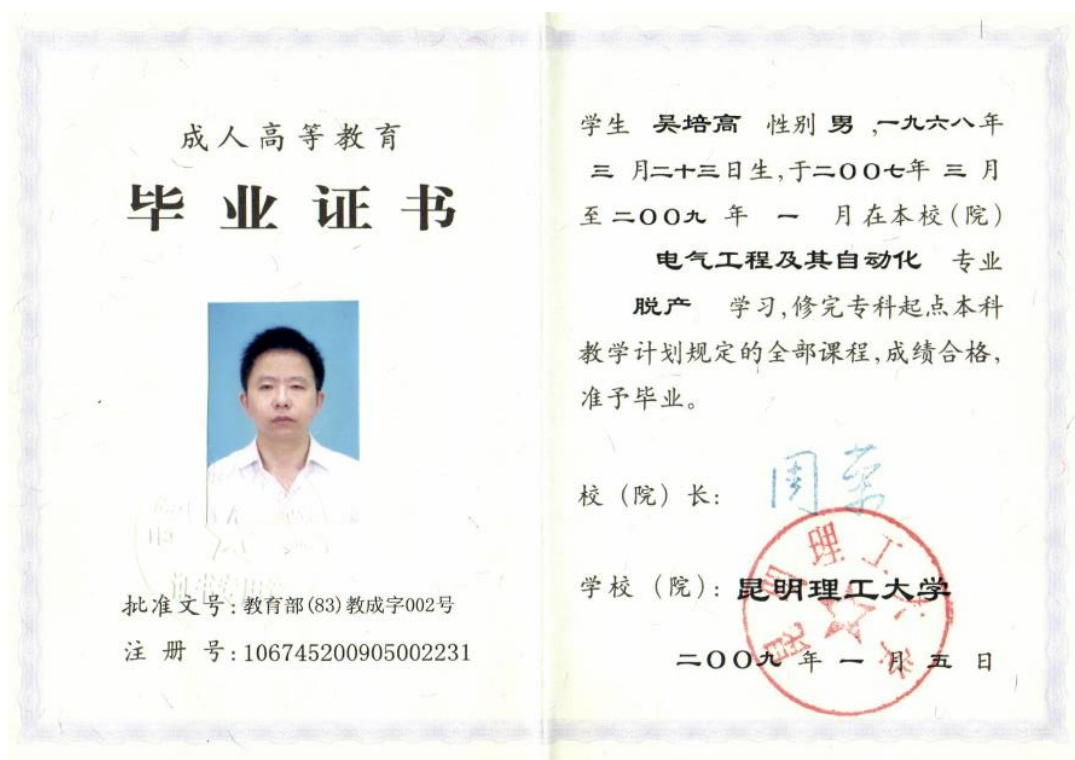 成人高等教育
毕业证书
批准文号:教育部(83)教成字002号
注册号:106745200905002231
学生 吴培高 性别 男 ,一九六八年
三 月二十三日生,于二〇〇七年 三 月
至 二〇〇九 年 一 月在本校(院)
电气工程及其自动化 专业
脱产 学习,修完专科起点本科
教学计划规定的全部课程,成绩合格,
准予毕业。
校(院)长: 周荣
学校(院): 昆明理工大学
昆明理工大学
二〇〇九 年 一 月 五 日